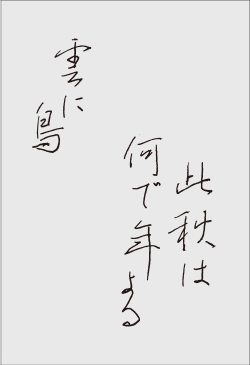 此秋は
何で年よる
雲に鳥